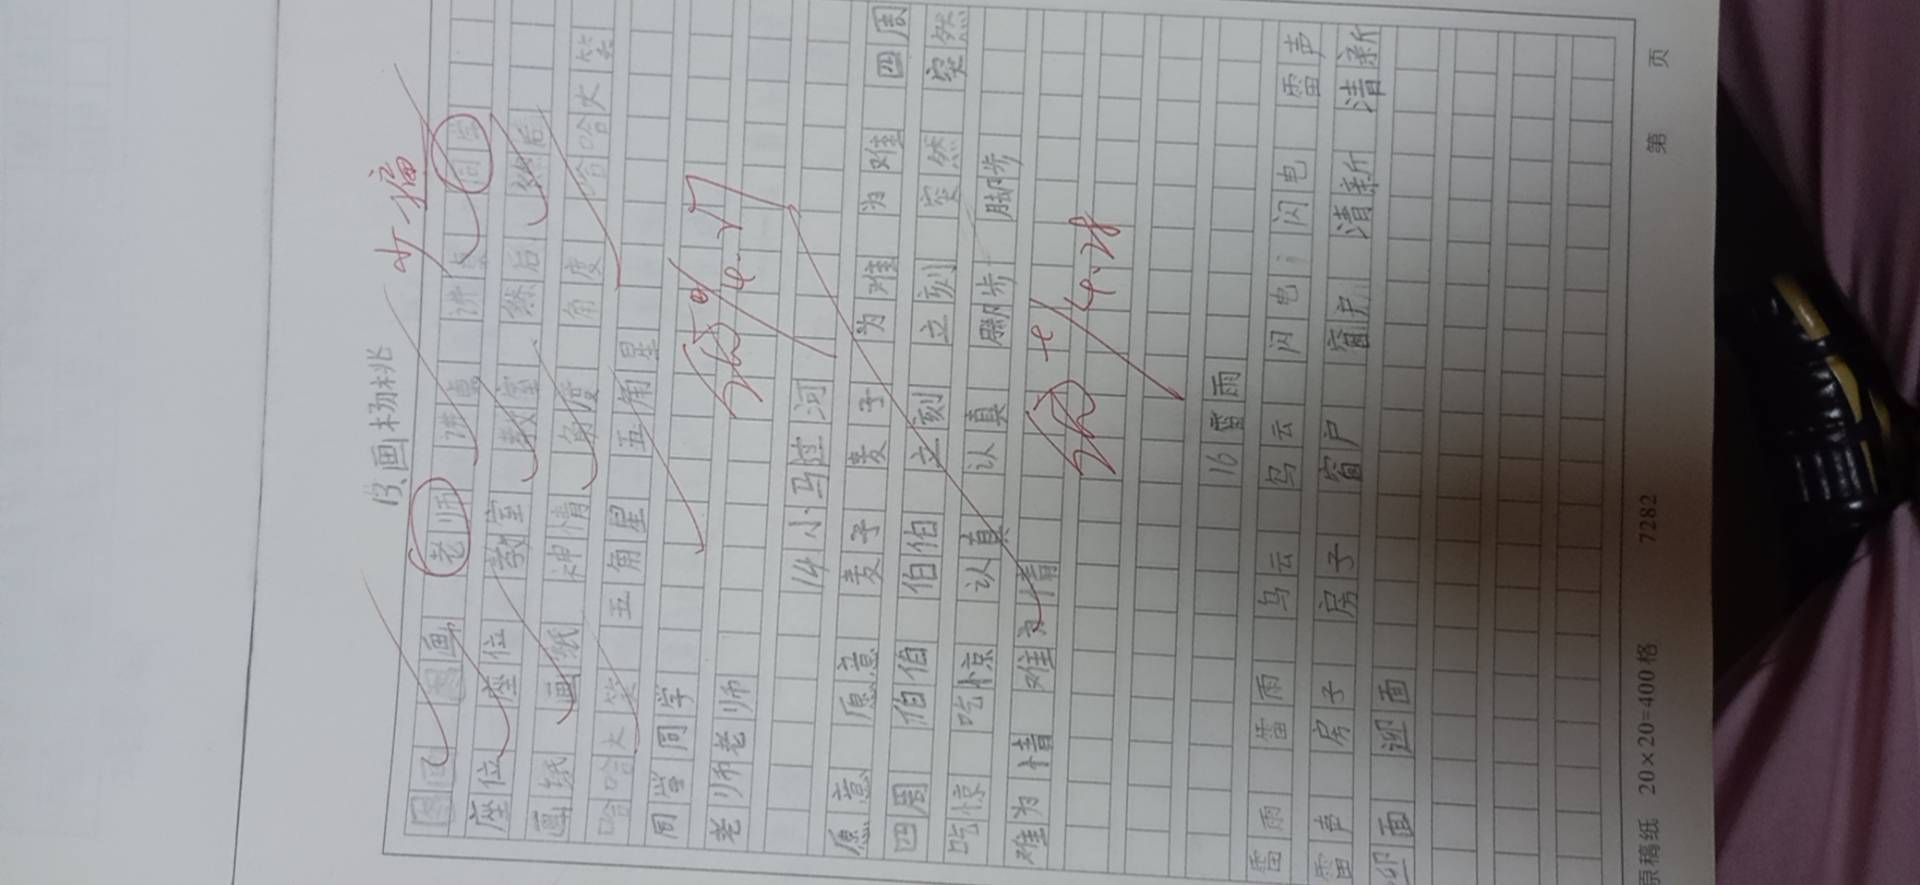 13、画杨桃
图画 图画 老师 讲桌 讲桌 同学
座位 座位 教室 教室 然后 然后
画纸 画纸 神情 角度 角度
哈哈大笑 五角星 五角星 哈哈大笑
同学 同学
老师 老师
14 小马过河
愿意 愿意 麦子 麦子 为难 为难 四周
四周 伯伯 伯伯 立刻 立刻 突然 突然
吃惊 吃惊 认真 认真 脚步 脚步
难为情 难为情
4.28
16 雷雨
雷雨 雷雨 乌云 乌云 闪电 闪电 雷声
雷声 房子 房子 窗户 窗户 清新 清新
迎面 迎面
原稿纸 20×20=400格 7282 第 页